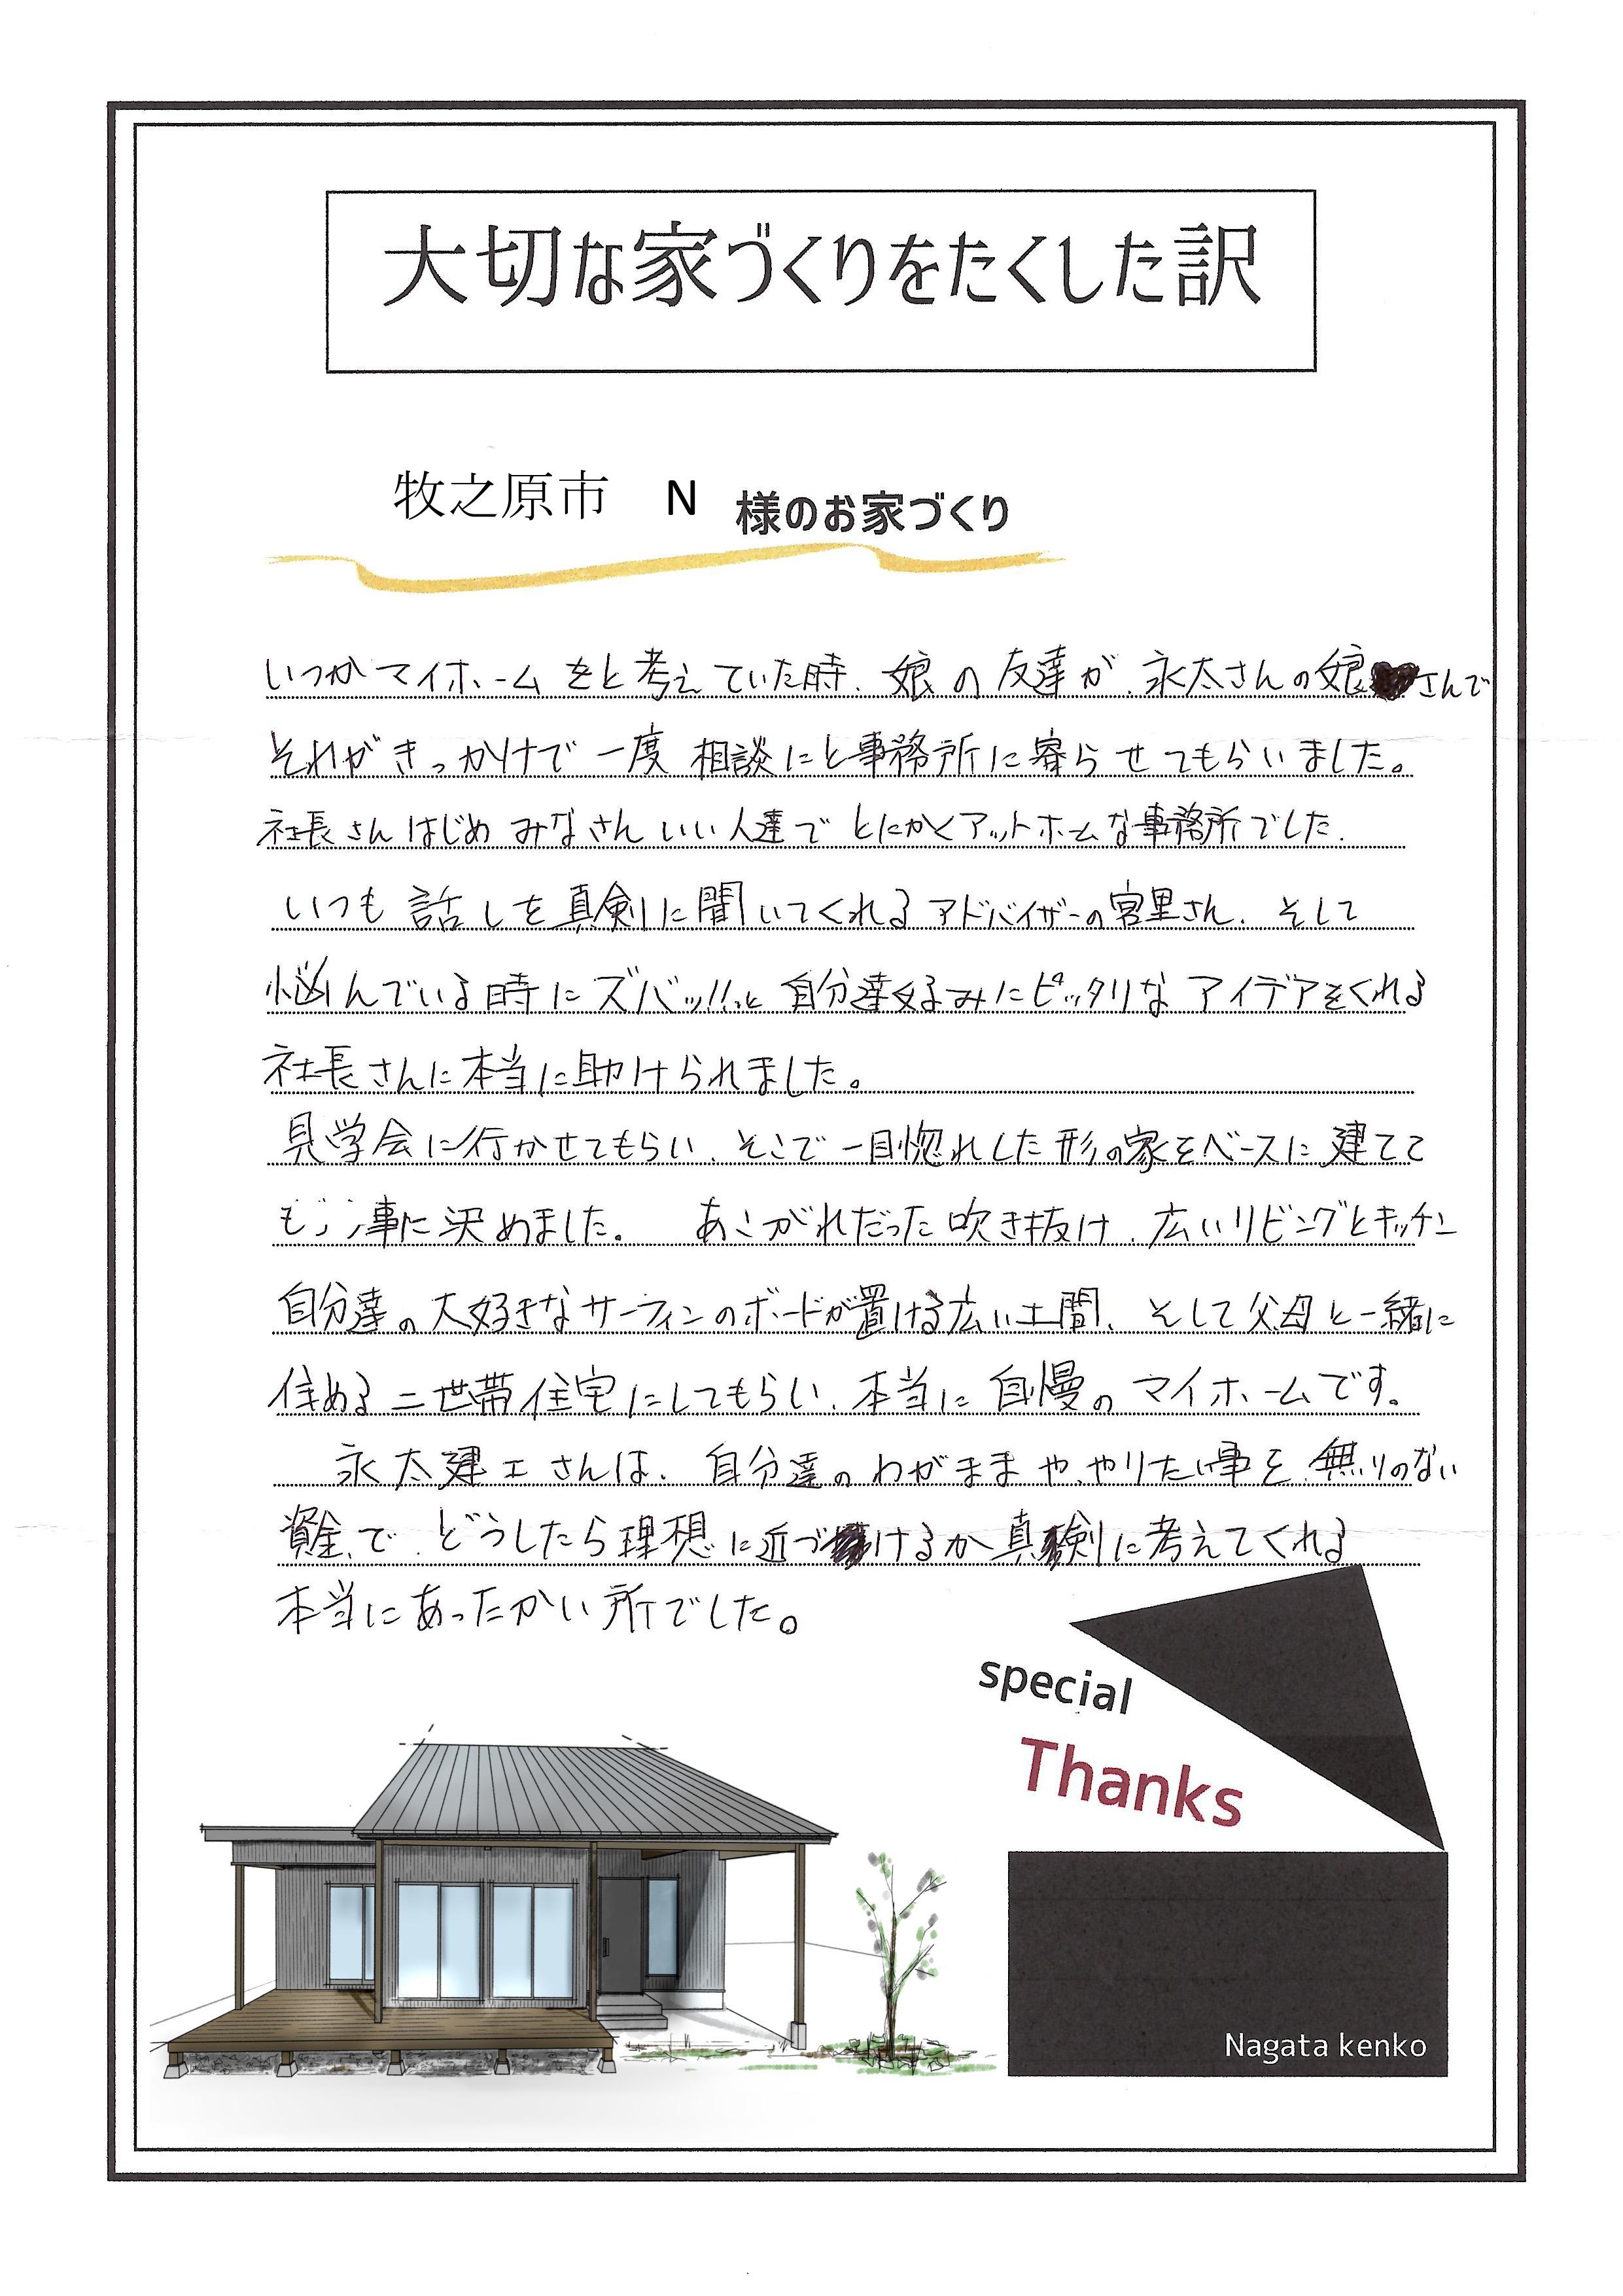 大切な家づくりをたくした訳
牧之原市 N 様のお家づくり
いつかマイホームをと考えていた時、娘の友達が、永太さんの娘さんで
それがきっかけで一度相談にと事務所に寄らせてもらいました。
社長さんはじめみなさんいい人達でとにかくアットホームな事務所でした。
いつも話しを真剣に聞いてくれるアドバイザーの宮里さん、そして
悩んでいる時にズバッ!!っと自分達好みにピッタリなアイデアをくれる
社長さんに本当に助けられました。
見学会に行かせてもらい、そこで一目惚れした形の家をベースに建てて
もらう事に決めました。 あこがれだった吹き抜け、広いリビングとキッチン
自分達の大好きなサーフィンのボードが置ける広い土間、そして父母と一緒に
住める二世帯住宅にしてもらい、本当に自慢のマイホームです。
永太建工さんは、自分達のわがままや、やりたい事を、無リのない
資金で、どうしたら理想に近づけるか真剣に考えてくれる
本当にあったかい所でした。
special
Thanks
Nagata kenko